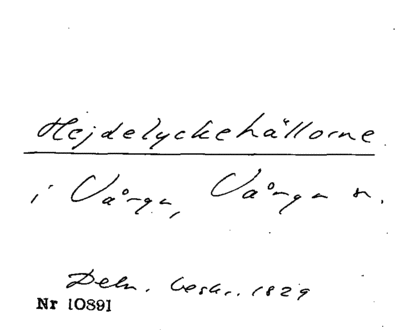 Hejdelyckehällorne
i Vånga, Vånga sn.
Deln. beskr. 1829
Nr 10891